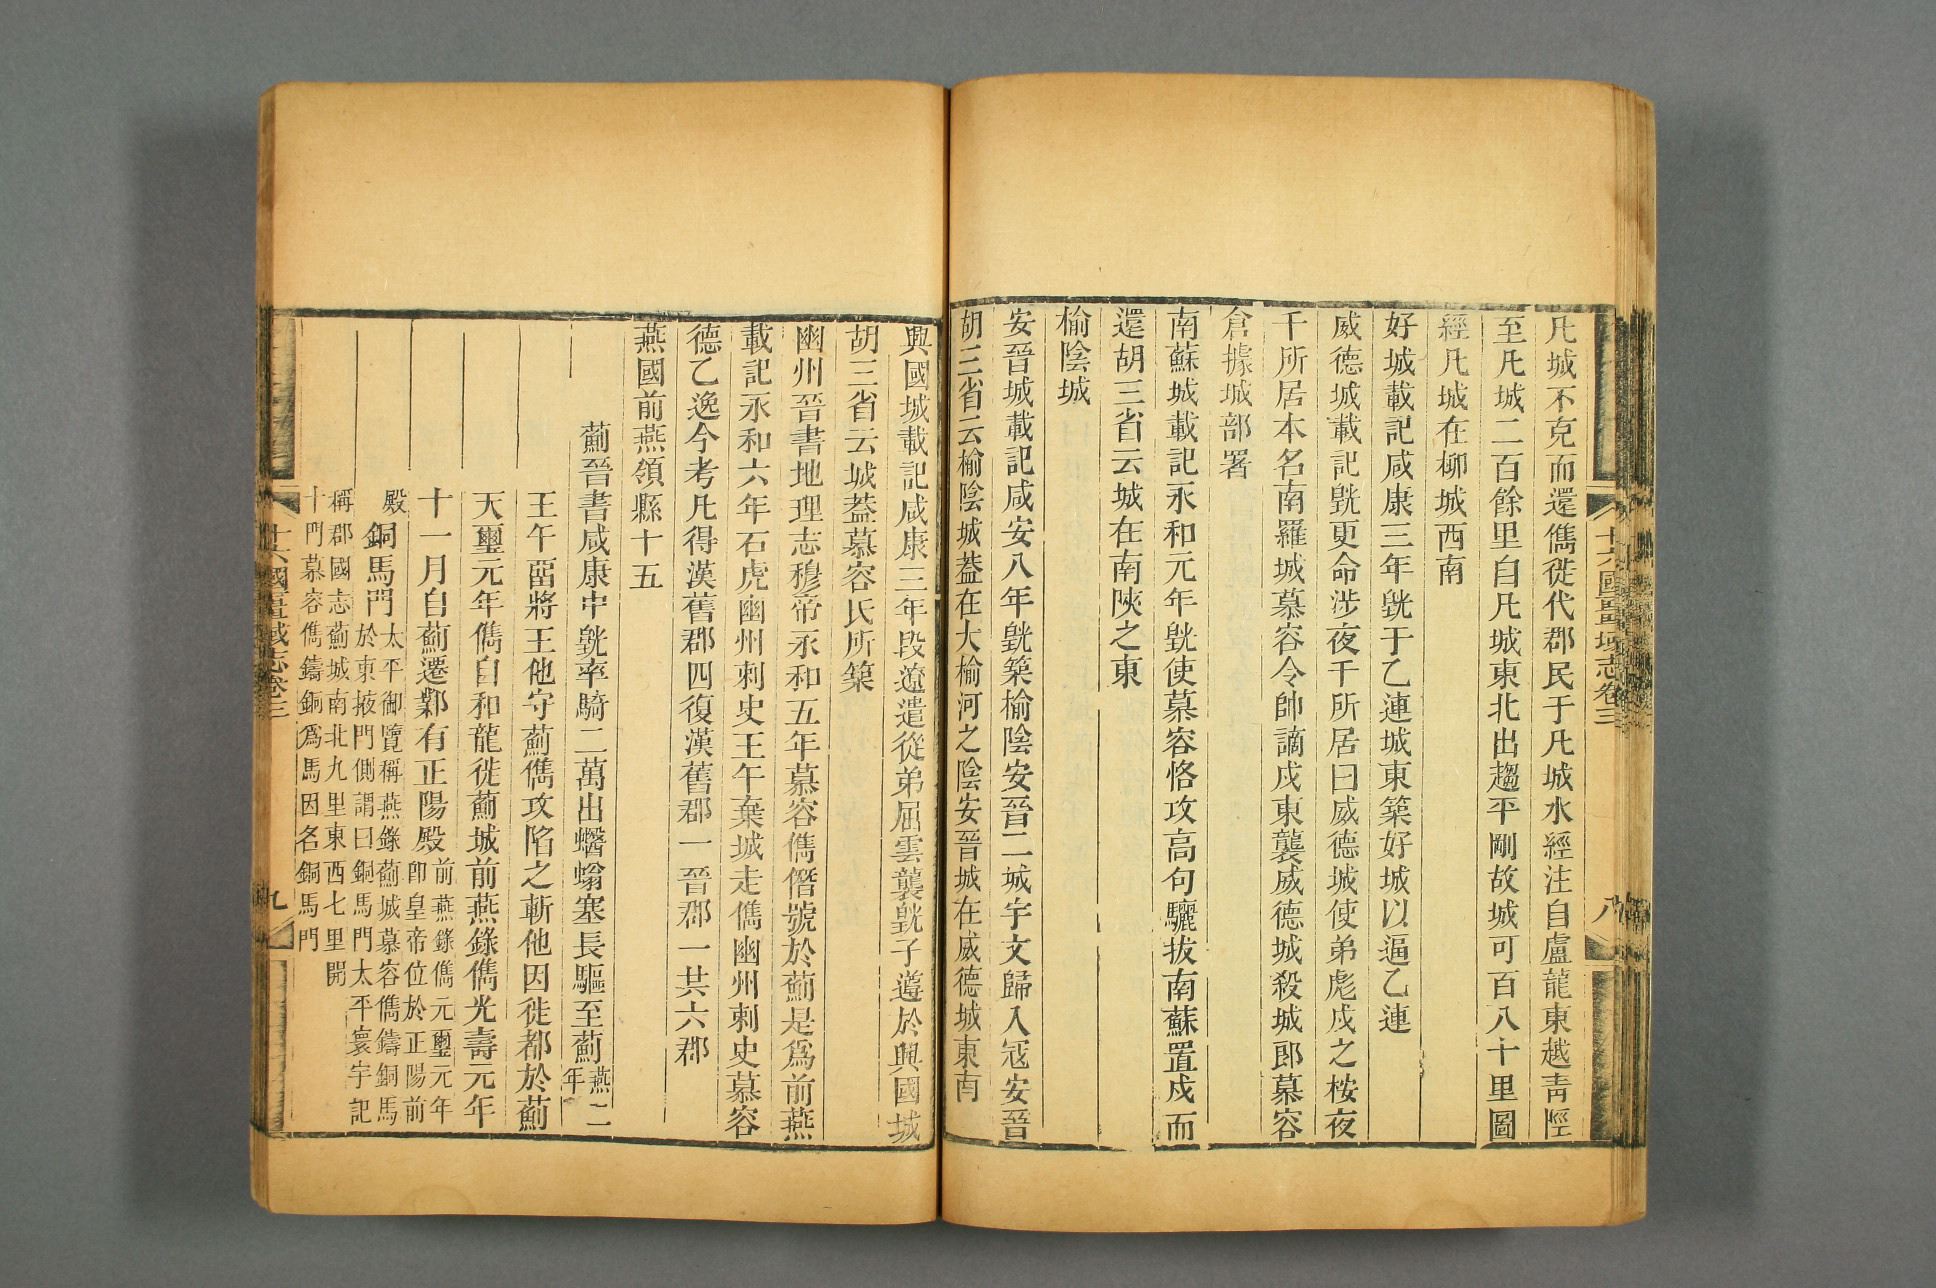 十六國疆域志卷三
八
凡城不克而還儁徙代郡民于凡城水經注自盧龍東越靑陘
至凡城二百餘里自凡城東北出趨平剛故城可百八十里圖
經凡城在柳城西南
好城載記咸康三年皝于乙連城東築好城以逼乙連
威德城載記皝更命涉夜干所居曰威德城使弟彪戍之桉夜
干所居本名南羅城慕容令帥謫戍東襲威德城殺城郎慕容
倉據城部署
南蘇城載記永和元年皝使慕容恪攻高句驪拔南蘇置戍而
還胡三省云城在南陜之東
榆陰城
安晉城載記咸安八年皝築榆陰安晉二城宇文歸入寇安晉
胡三省云榆陰城葢在大榆河之陰安晉城在威德城東南
興國城載記咸康三年段遼遣從弟屈雲襲皝子遵於興國城
胡三省云城葢慕容氏所築
幽州晉書地理志穆帝永和五年慕容儁僭號於薊是爲前燕
載記永和六年石虎幽州刺史王午棄城走儁幽州刺史慕容
德乙逸今考凡得漢舊郡四復漢舊郡一晉郡一共六郡
燕國前燕領縣十五
薊晉書咸康中皝率騎二萬出蠮螉塞長驅至薊燕二
年
王午畱將王他守薊儁攻陷之斬他因徙都於薊
天璽元年儁自和龍徙薊城前燕錄儁光壽元年
十一月自薊遷鄴有正陽殿前燕錄儁元璽元年
卽皇帝位於正陽前
殿銅馬門太平御覽稱燕錄薊城慕容儁鑄銅馬
於東掖門側謂曰銅馬門太平寰宇記
稱郡國志薊城南北九里東西七里開
十門慕容儁鑄銅爲馬因名銅馬門
十六國疆域志卷三
九